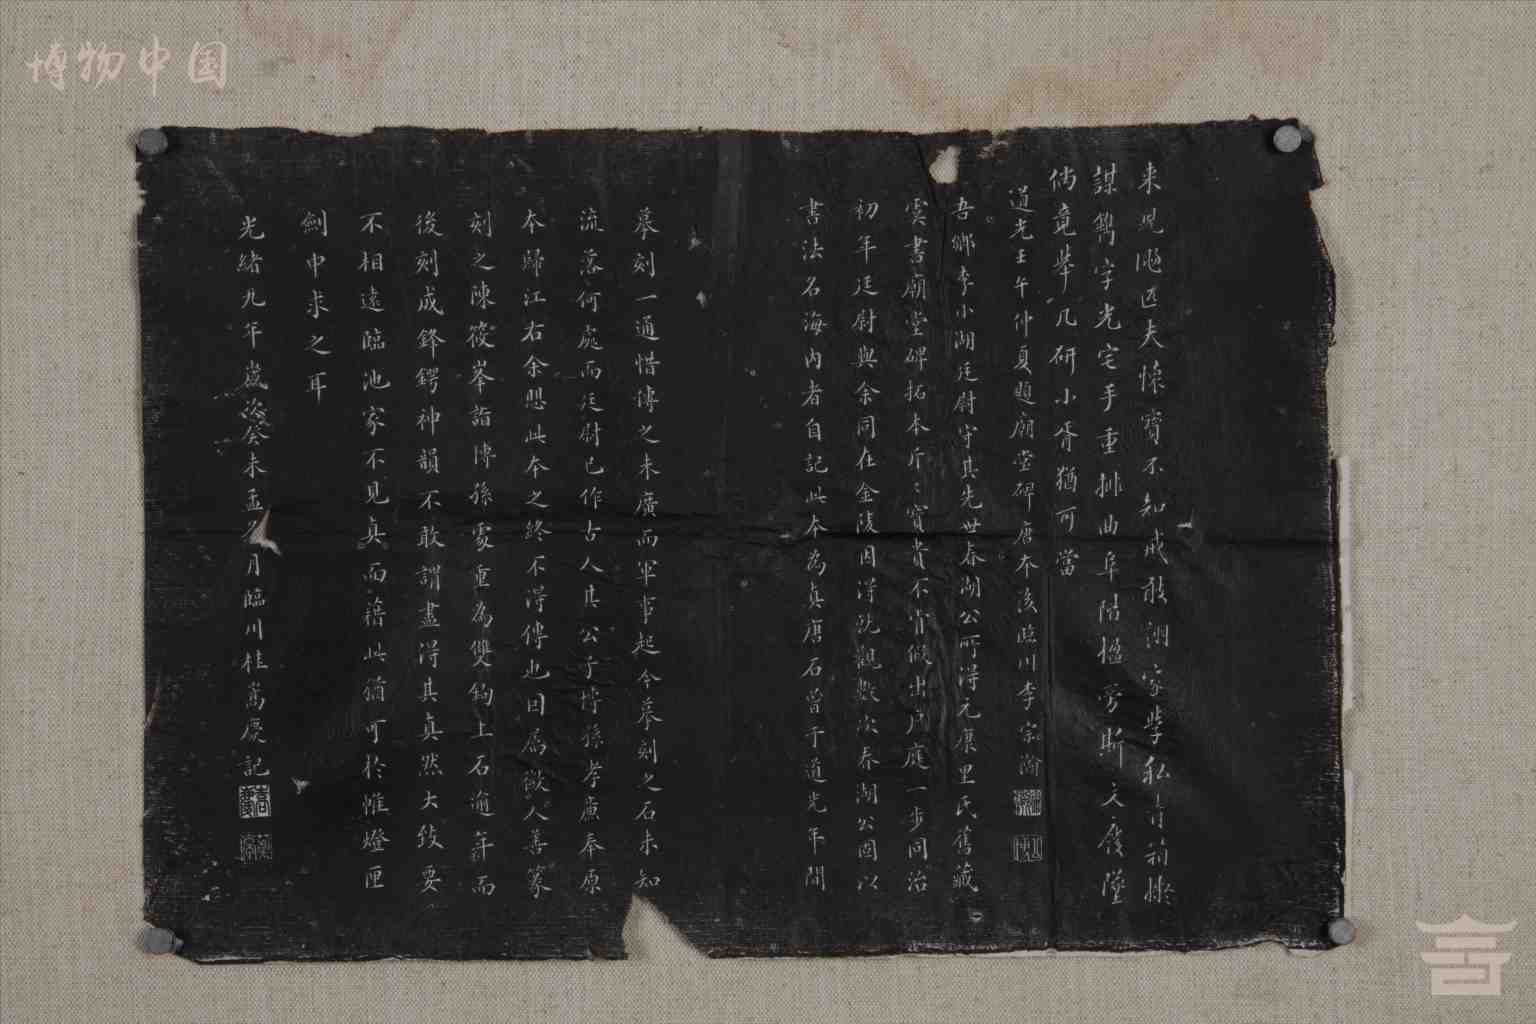 博物中国
来兄飚迅夫懐寶不知戒敢詡家學私
謀鐫字光宅手重排曲阜階楹旁斯文廢墜
倘竟舉几研小胥猶可當
道光壬午仲夏題廟堂碑唐本後臨川李宗瀚
吾鄉李小湖廷尉守其先世春湖公所得元康里氏舊藏
虞書廟堂碑拓本斤〻寶貴不肯假出户庭一步同治
初年廷尉與余同在金陵因得玩觀數次春湖公固以
書法名海内者自記此本為真唐石曾于道光年間
摹刻一通惜傳之未廣而軍事起今摹刻之石未知
流落何處而廷尉已作古人其公子博孫孝廉奉原
本歸江右余思此本之終不得傳也因属歙人善篆
刻之陳筱峯詣博孫處重為雙鈎上石逾年而
後刻成鋒鍔神韻不敢謂盡得其真然大致要
不相遠臨池家不見真而藉此猶可於帷燈匣
劍中求之耳
光緒九年歲次癸未孟冬月臨川桂嵩慶記